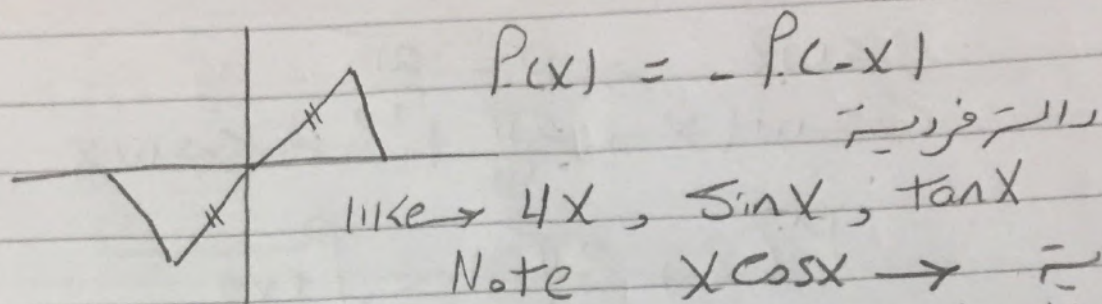 f(x) = - f(-x)
دالة فردية
like → 4x , sinx , tanx
Note x cosx →